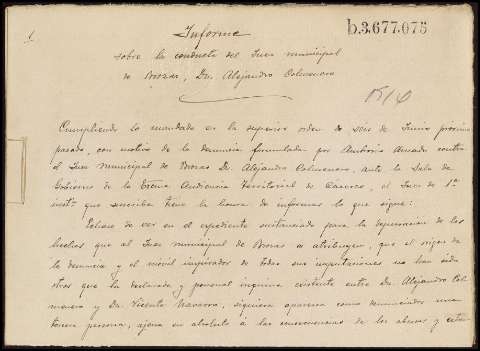 1
Informe
b.3.677.075
sobre la conducta del Juez municipal
de Brozas, Dn. Alejandro Colmenero
Cumpliendo lo mandado en la superior orden de seis de Junio próximo
pasado, con motivo de la denuncia formulada por Ambrosio Amado contra
el Juez Municipal de Brozas Dn. Alejandro Colmenero, ante la Sala de
Gobierno de la Excma Audiencia Territorial de Cáceres, el Juez de 1ª
instª que suscribe tiene la honra de informar lo que sigue:
Échase de ver en el expediente sustanciado para la depuración de los
hechos que al Juez municipal de Brozas se atribuyen, que el origen de
la denuncia y el móvil inspirador de todas sus imputaciones no han sido
otros que la declarada y personal inquina existente entre Dn. Alejandro Col
menero y Dn. Vicente Navarro, siquiera aparezca como denunciador una
tercera persona, ajena en absoluto a las consecuencias de los abusos y